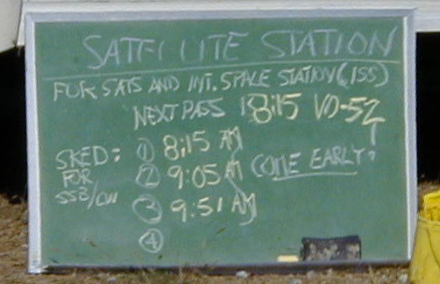 SATELLITE STATION
FOR SATS AND INT. SPACE STATION (ISS)
NEXT PASS 8:15 VO-52
SKED: ① 8:15 AM
FOR ② 9:05 AM COME EARLY!
SSB/CW ③ 9:51 AM
④